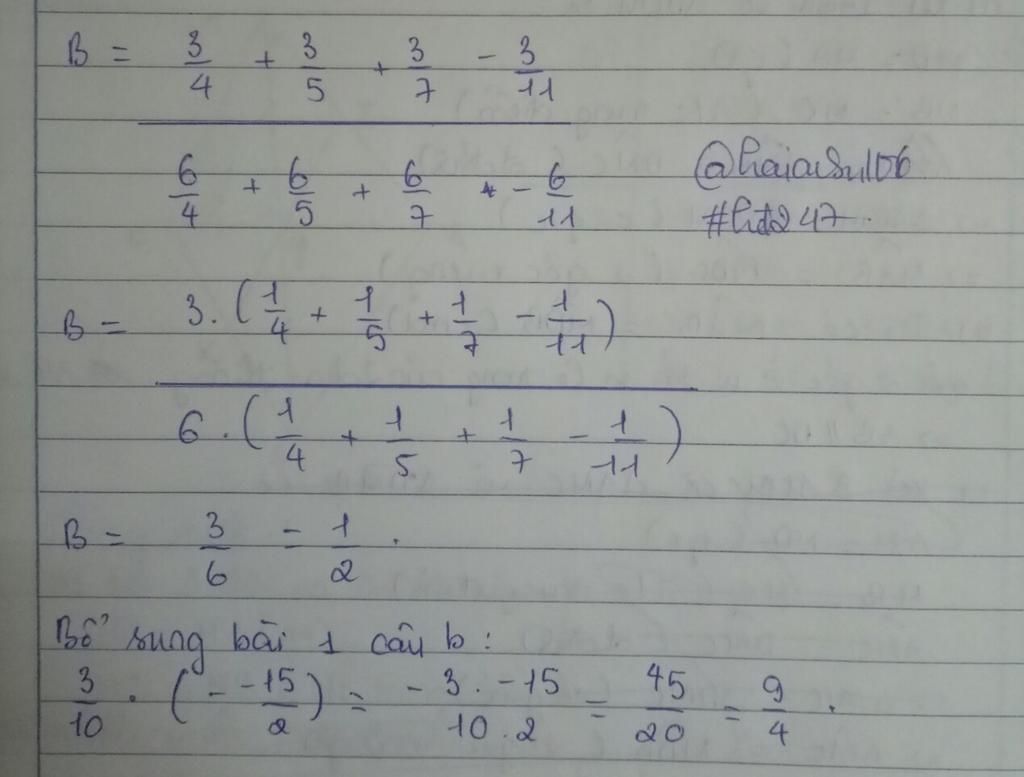 B = 3/4 + 3/5 + 3/7 - 3/11
6/4 + 6/5 + 6/7 - 6/11
#hđ247
B = 3.(1/4 + 1/5 + 1/7 - 1/11)
6.(1/4 + 1/5 + 1/7 - 1/11)
B = 3/6 = 1/2.
Bổ sung bài 1 câu b:
3/10 . (- -15/2) = -3.-15/10.2 = 45/20 = 9/4.